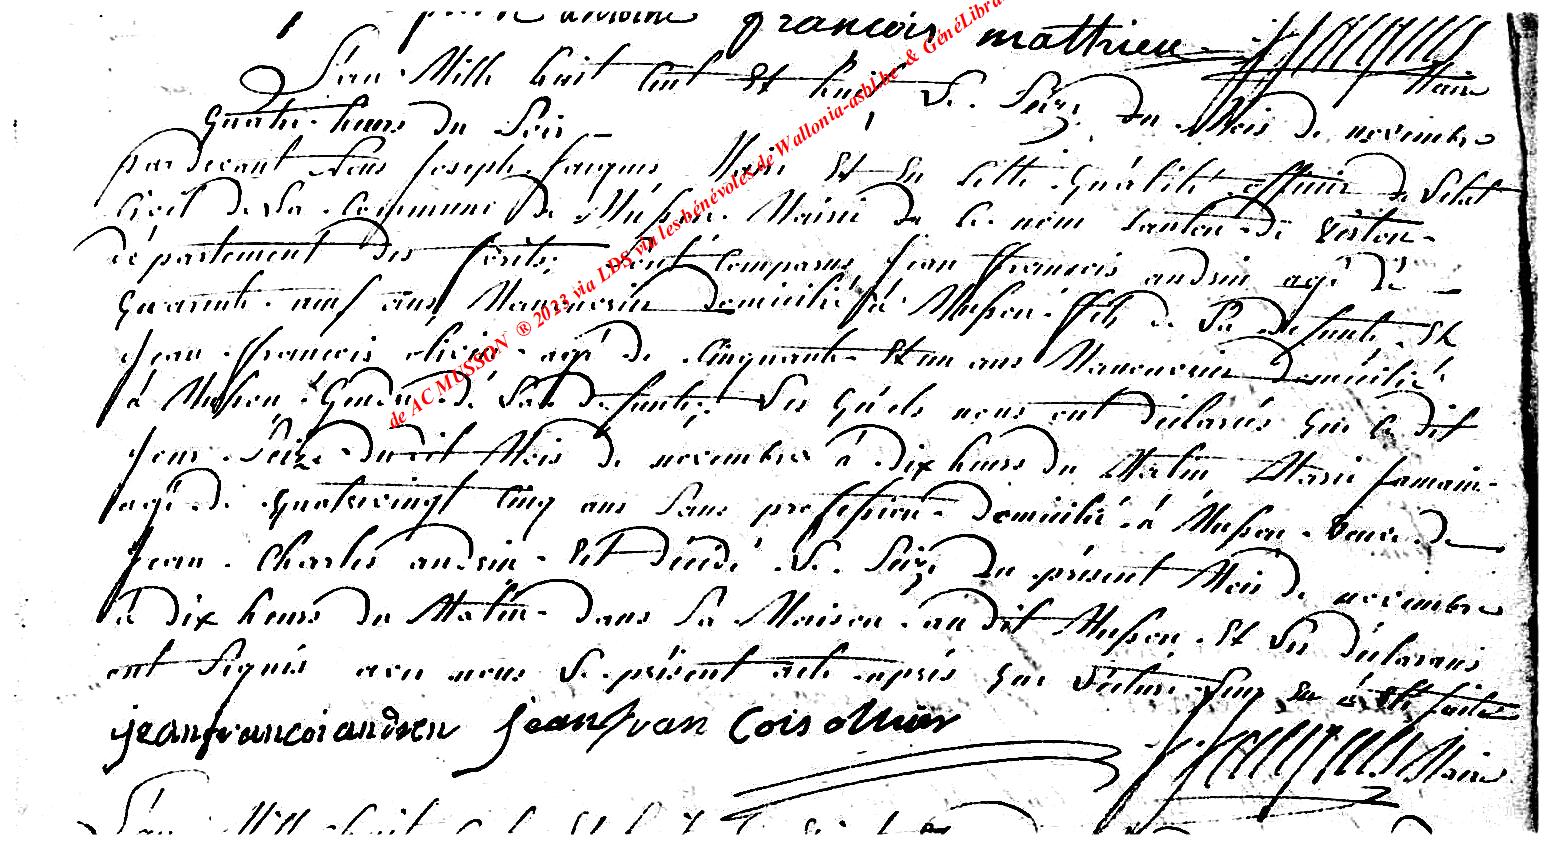 françois mathieu
Maire
L'an Mille huit Cent et huit Le Seize du Mois de novembre
quatre heures du Soir
pardevant Nous Joseph Jacques Maire Et En Cette qualité officier de L'état
Civil de La Commune De Musson Mairie de Ce nom Canton de Virton
département des forêts, sont Comparus Jean françois andrin agé de
quarante neuf ans Manouvrier domicilié à Musson fils de La defunte et
Jean françois olivier agé de Cinquante Et un ans Manouvrier domicilié
à Musson Gendre de La defunte, Les quels nous ont déclarés que Ce dit
Jour Seize dudit Mois de novembre à dix heures du Matin Marie
agé de quatrevingt Cinq ans Sans profession domicilié à Musson Veuve de
Jean Charles andrin Est décédé Le Seize du présent Mois de novembre
à dix heures du Matin dans Sa Maison audit Musson Et Les déclarans
ont Signés avec nous Le présent acte après que Lecture Leur En à Eté faite
jean francoi andren jean fran Cois ollivier
Maire
L'an Mille huit
de AC MUSSON ® 2023 via LDS via les bénévoles de Wallonia-asbl.be & GénéLibra